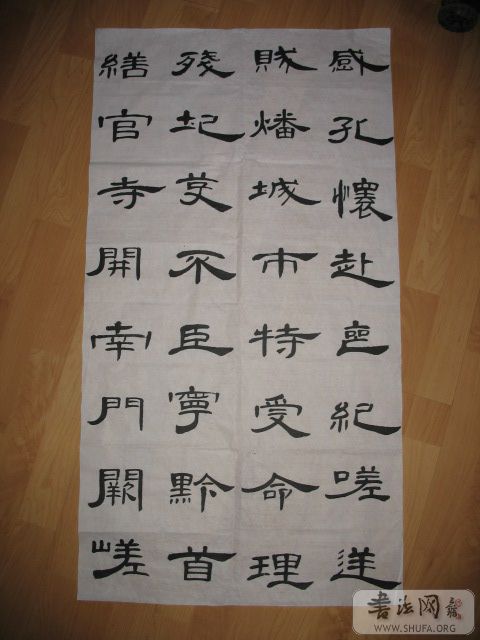 感孔懷赴喪紀嗟逆
賊燔城市特受命理
殘圮芟不臣寧黔首
繕官寺開南門闕嵯
書法网
WWW.SHUFA.ORG